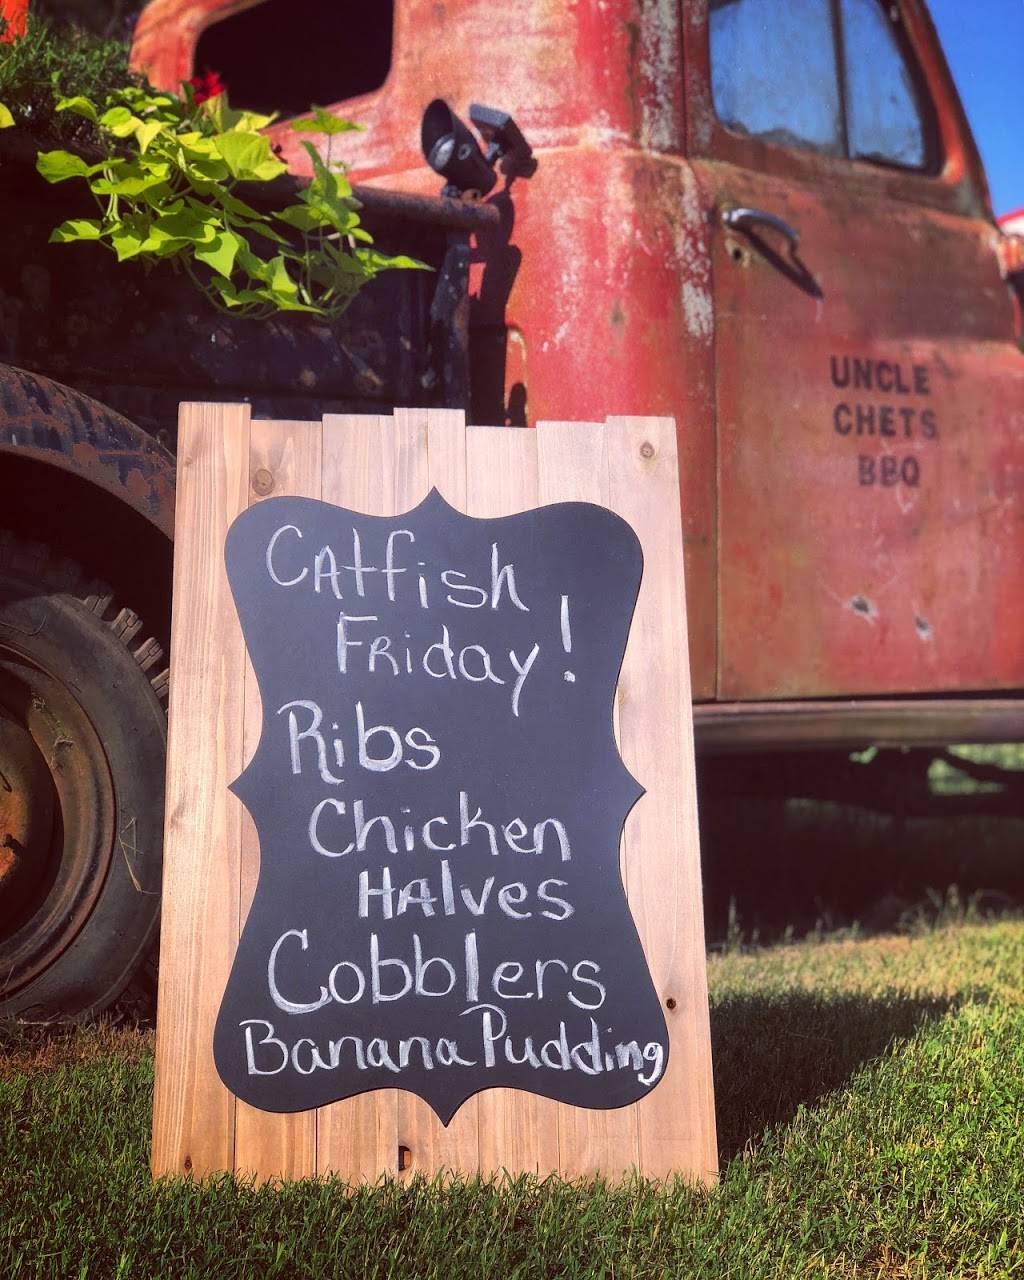 UNCLE
CHETS
BBQ
Catfish
Friday!
Ribs
Chicken
Halves
Cobblers
Banana Pudding